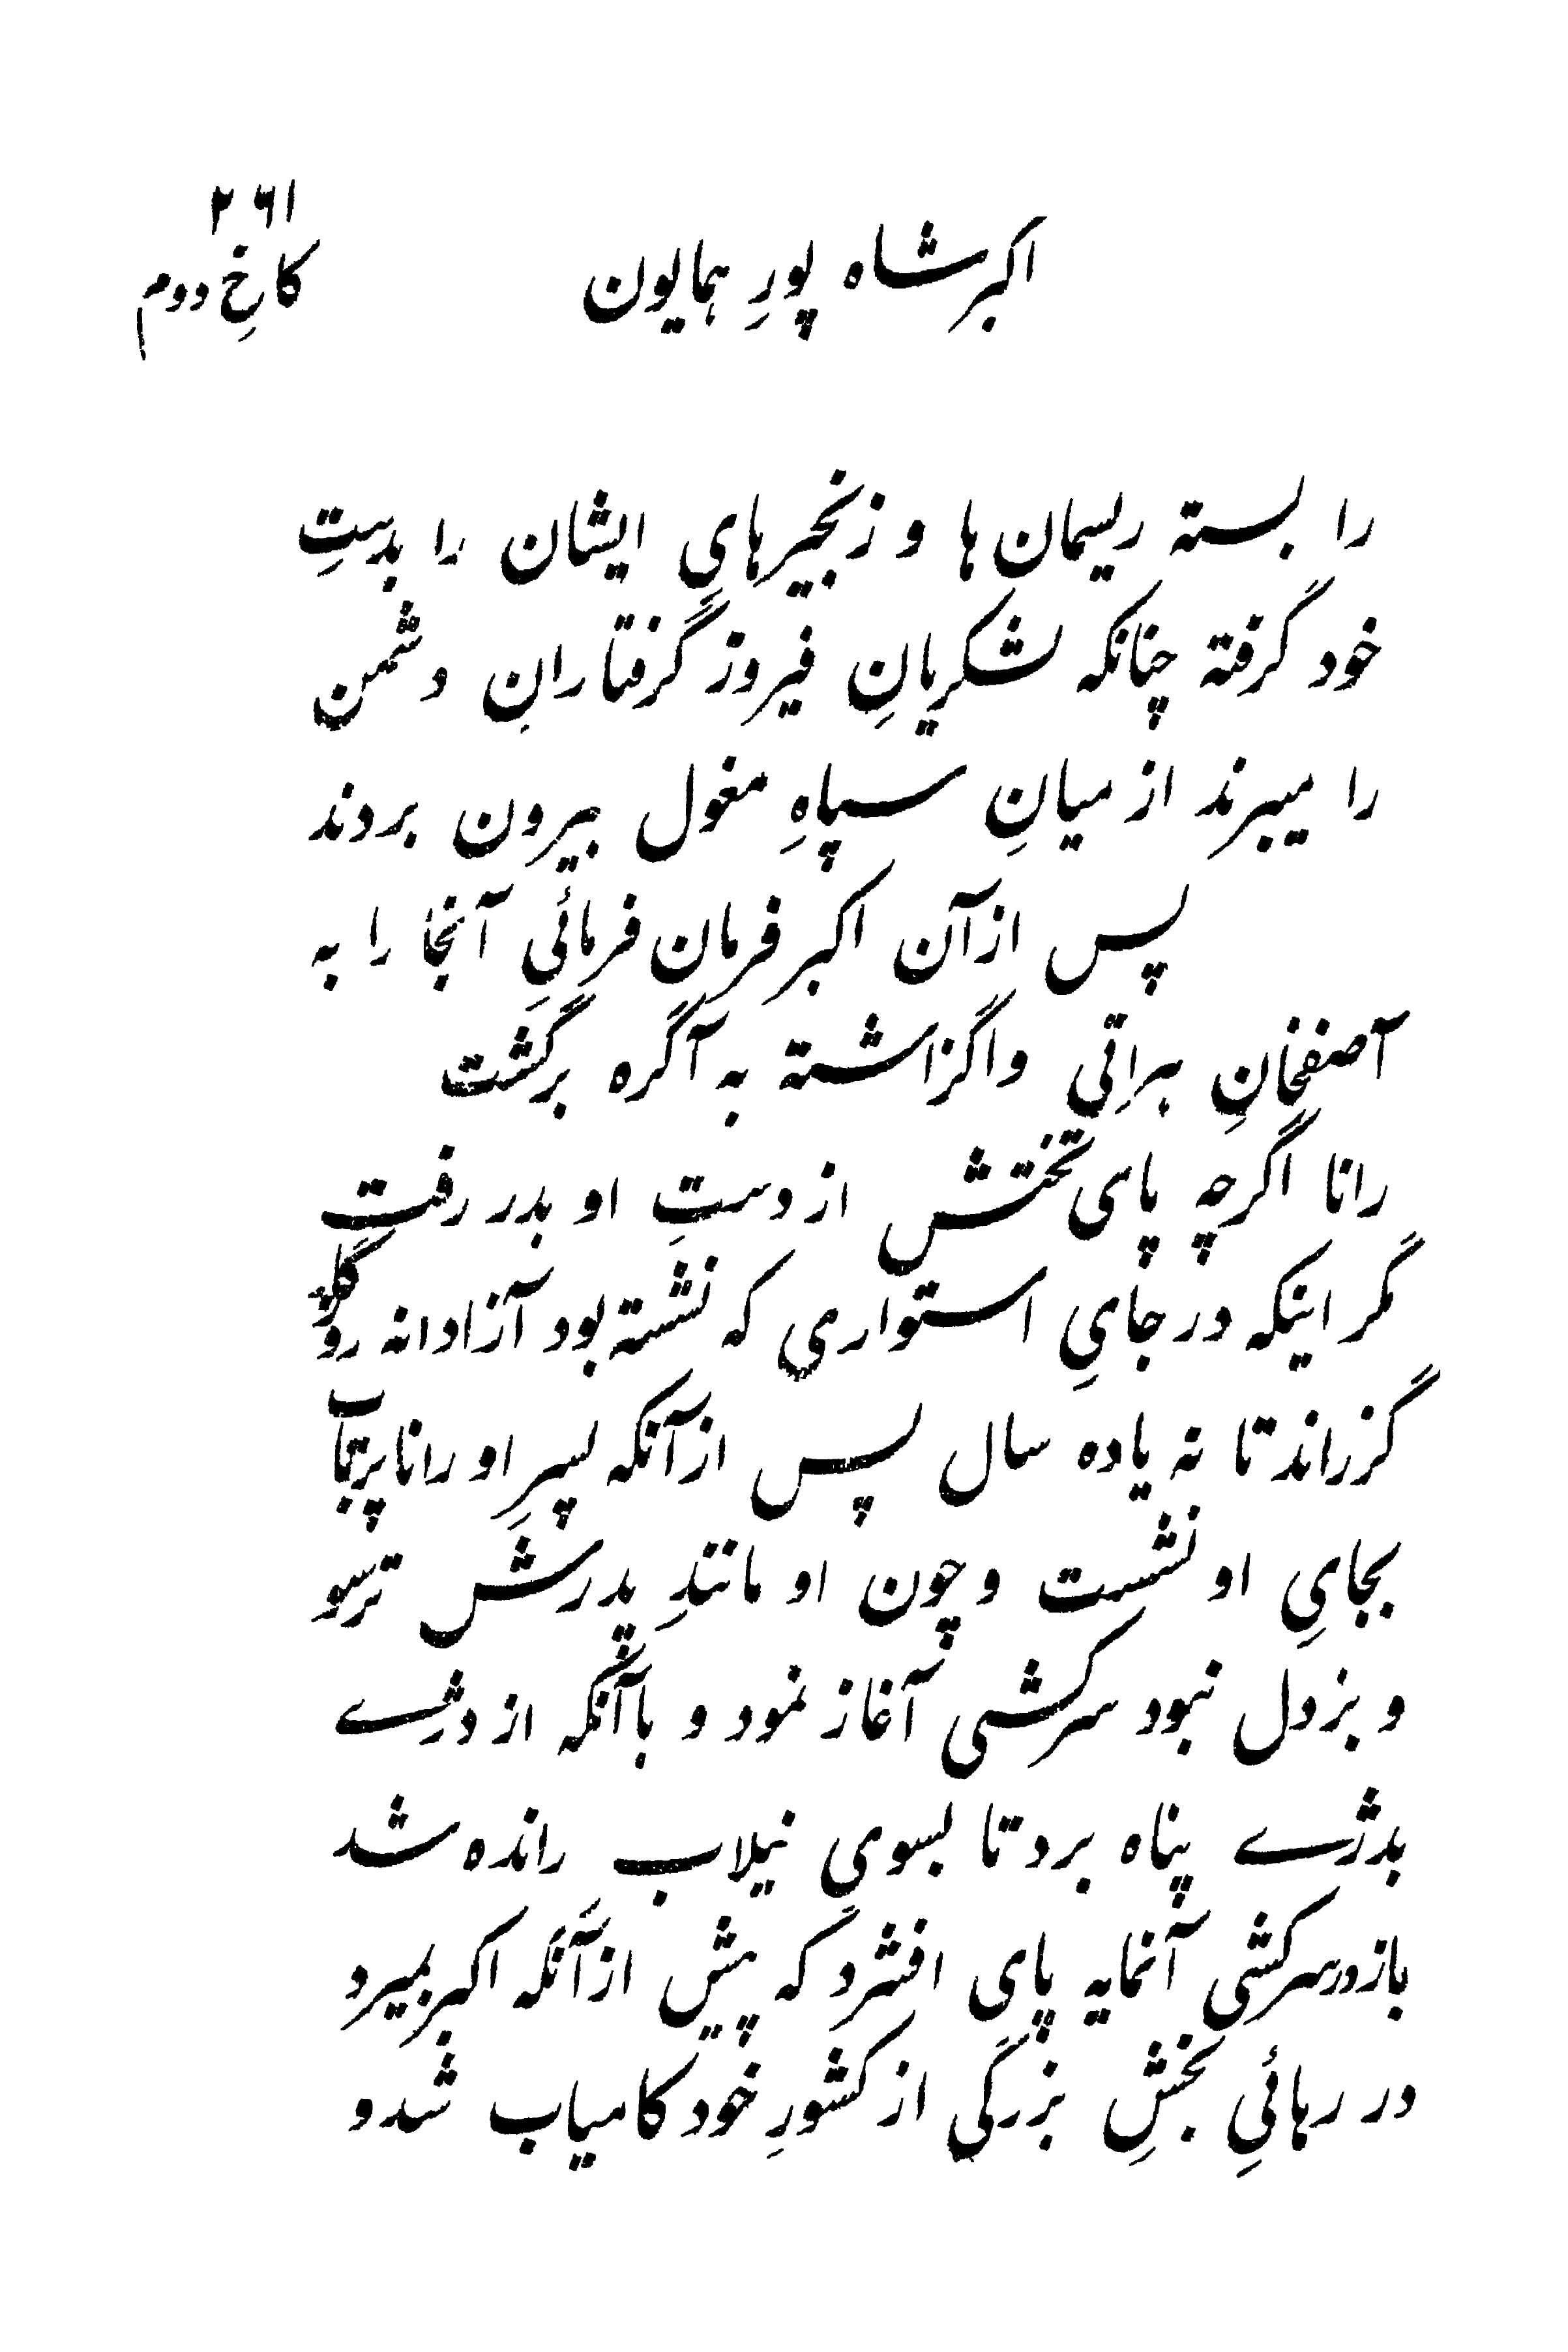 ۲۶۱
کاخِ دوم
اکبرشاه پورِ همایون
را بسته ریسمان‌ها و زنجیرهایِ ایشان را بدستِ
خود گرفته چنانکه لشکریانِ فیروز گرفتارانِ دشمن
را میبرند از میانِ سپاهِ مغول بیرون بردند
پس ازآن اکبر فرمان فرمائیِ آنجا را به
آصفخانِ هراتی واگزاشته به آگره برگشت
رانا اگرچه پای تختش از دستِ او بدر رفت
مگر اینکه در جایِ استواری که نشسته بود آزادانه روزگار
گزراند تا نه یا ده سال پس ازآنکه پسرِ او رانا پرتاب
بجایِ او نشست و چون او مانندِ پدرش ترسو
و بزدل نبود سرکشی آغاز نمود و باآنکه از دژے
بدژے پناه برد تا بسویِ نیلاب رانده شد
باز درسرکشی آنمایه پای افشرد که پیش ازآنکه اکبر بمیرد
در رهائیِ بخشِ بزرگی از کشورِ خود کامیاب شد و